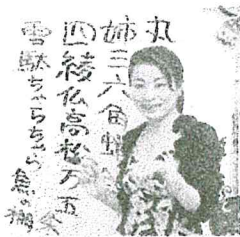 丸
姉三六角蛸
四綾仏高松万五
雪駄ちゃらちゃら魚の棚